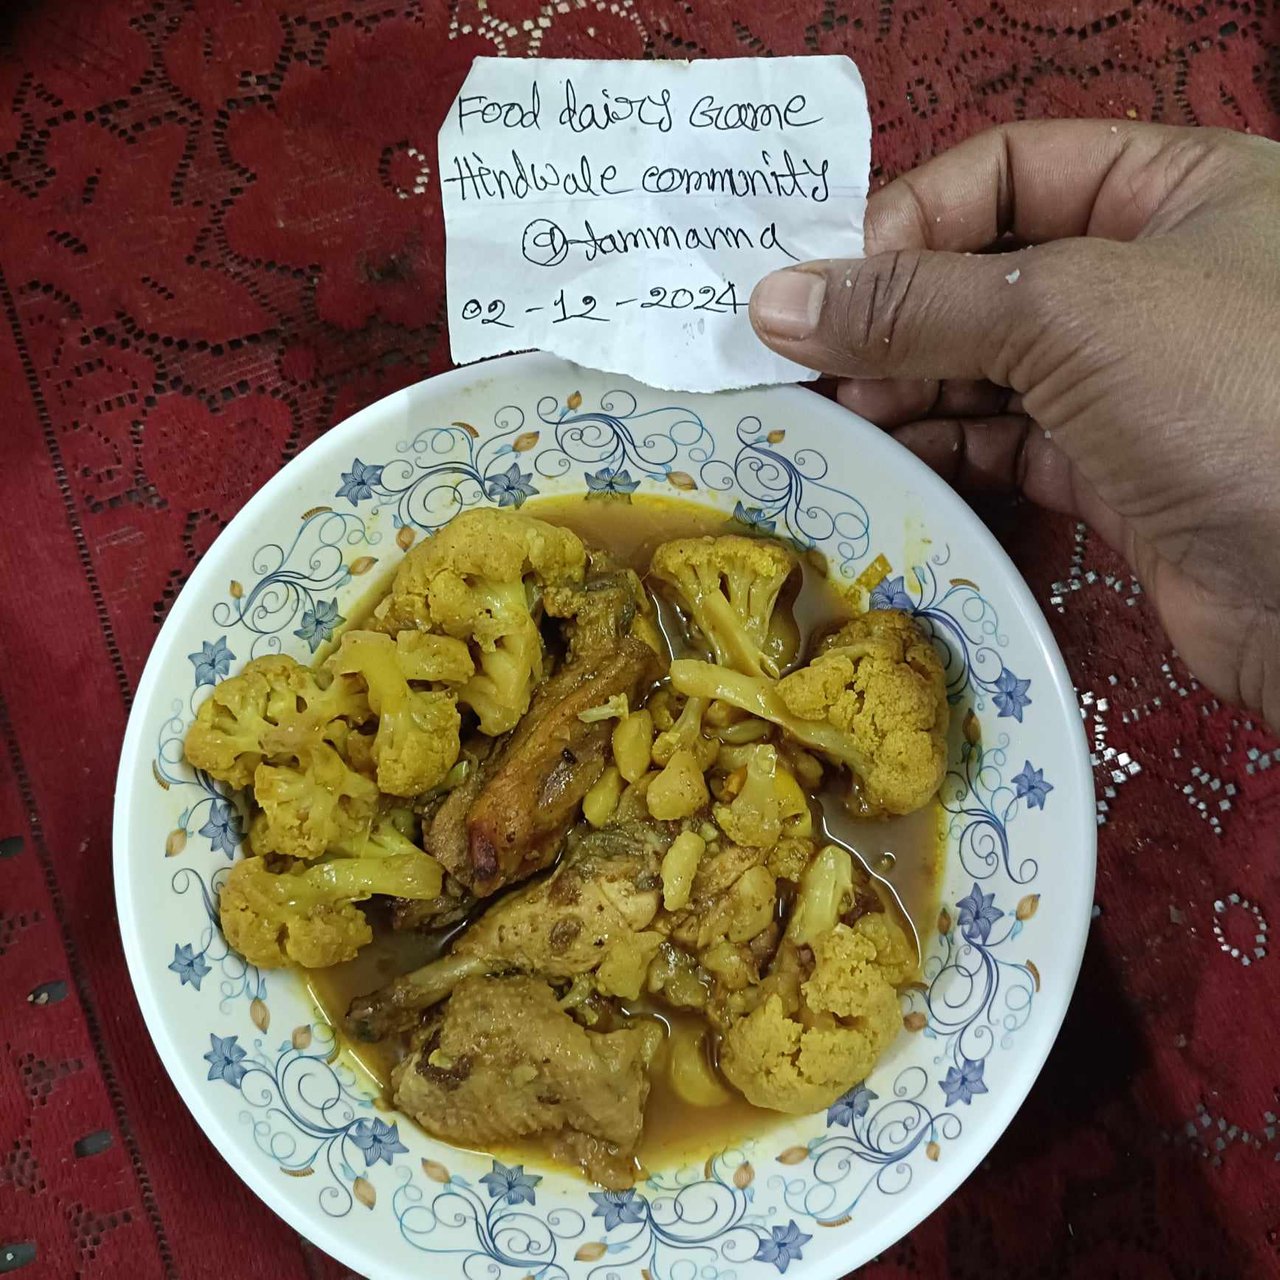 Food dairy Game
Hindwale community
@tammanna
02-12-2024